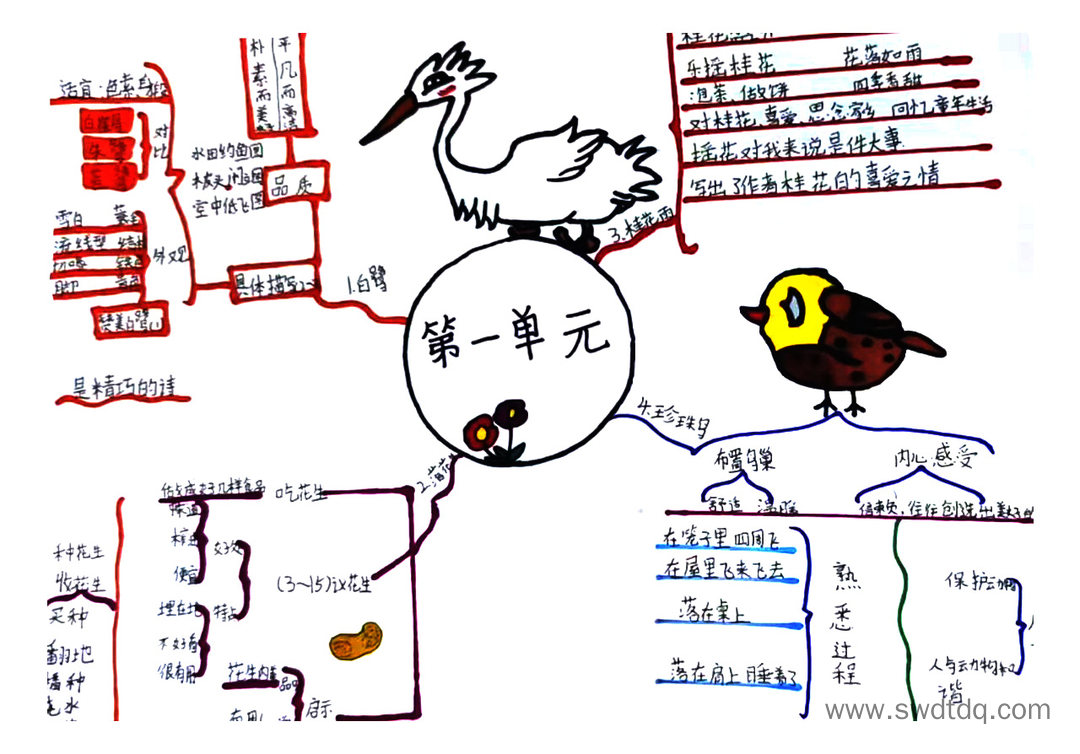 第一单元
1.白鹭
具体描写
品质
朴素而美
平凡而高
水田钓鱼图
空中低飞图
适宜:色素身段
对比
白鹤
朱鹭
苍鹭
外观
雪白
流线型
青色
赞美白鹭
是精巧的诗
3.桂花雨
乐摇桂花 花落如雨
泡茶、做饼 四季香甜
对桂花喜爱、思念家乡 回忆童年生活
摇花对我来说是件大事.
写出了作者桂花的喜爱之情
4.珍珠鸟
布置鸟巢
内心感受
舒适 温暖
信赖,往往创造出美好的
在笼子里四周飞
在屋里飞来飞去
落在桌上
落在肩上睡着了
熟悉过程
保护动物
人与动物和谐
2.落花生
吃花生
做成好几样食品
(3~15)议花生
好处
味道
榨油
便宜
特点
埋在地
不好看
很有用
启示
花生内
品
种花生
收花生
买种
翻地
播种
浇水
www.swdtdq.com